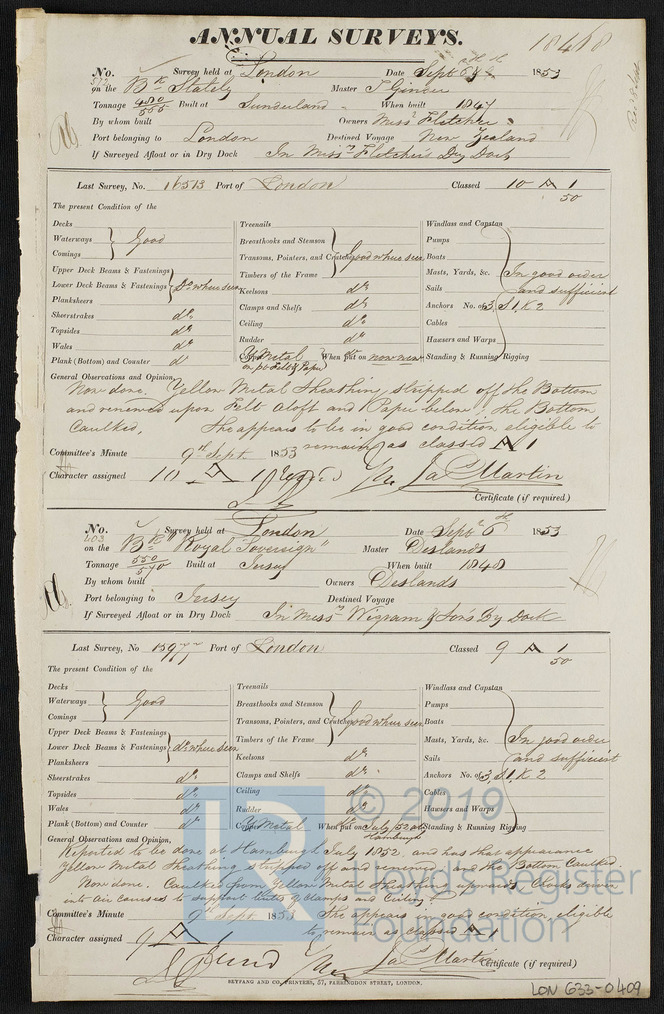 ANNUAL SURVEYS.
18418
No. Survey held at London Date Sept 1853
on the Bk Stately Master J Ginder
Tonnage 480/555 Built at Sunderland When built 1847
By whom built Owners Messrs Fletcher
Port belonging to London Destined Voyage New Zealand
If Surveyed Afloat or in Dry Dock In Messrs Fletcher's Dry Dock
Last Survey, No. 16513 Port of London Classed 10 A 1
50
The present Condition of the
Decks
Waterways
Comings
Good
Upper Deck Beams & Fastenings
Lower Deck Beams & Fastenings
Do where seen
Planksheers
Sheerstrakes do
Topsides do
Wales do
Plank (Bottom) and Counter do
Treenails
Breasthooks and Stemson
Transoms, Pointers, and Crutches
Timbers of the Frame
Good where seen
Keelsons do
Clamps and Shelfs do
Ceiling do
Rudder do
Y Metal When put on now new
on Felt & Paper
Windlass and Capstan
Pumps
Boats
Masts, Yards, &c. In good order
Sails and sufficient
Anchors No. of 3, S 1, K 2
Cables
Hawsers and Warps
Standing & Running Rigging
General Observations and Opinion,
Now done. Yellow Metal Sheathing stripped off the Bottom
and renewed upon Felt aloft and Paper below. The Bottom
Caulked. She appears to be in good condition eligible to
remain as classed A 1
Committee's Minute 9th Sept. 1853
Character assigned 10 A 1
Jas Martin
Certificate (if required)
No. 403 Survey held at London Date Septr 6th 1853
on the Bk "Royal Sovereign" Master Deslands
Tonnage 550/570 Built at Jersey When built 1848
By whom built Owners Deslands
Port belonging to Jersey Destined Voyage
If Surveyed Afloat or in Dry Dock In Messrs Wigram & Son's Dry Dock
Last Survey, No 15977 Port of London Classed 9 A 1
50
The present Condition of the
Decks
Waterways
Comings
Good
Upper Deck Beams & Fastenings
Lower Deck Beams & Fastenings
do where seen
Planksheers
Sheerstrakes do
Topsides do
Wales do
Plank (Bottom) and Counter do
Treenails
Breasthooks and Stemson
Transoms, Pointers, and Crutches
Timbers of the Frame
Good where seen
Keelsons do
Clamps and Shelfs do
Ceiling do
Rudder do
Y Metal When put on July 52 at
Hamburgh
Windlass and Capstan
Pumps
Boats
Masts, Yards, &c. In good order
Sails and sufficient
Anchors No. of 3, S 1, K 2
Cables
Hawsers and Warps
Standing & Running Rigging
General Observations and Opinion,
Reported to be done at Hamburgh July 1852, and has that appearance
Yellow Metal Sheathing stripped off and renewed, and the Bottom Caulked.
Now done. Caulked from Yellow Metal Sheathing upwards. Chocks driven
into Air courses to support butts of Clamps and Ceiling.
Committee's Minute 9 Sept. 1853 She appears in good condition, eligible
to remain as classed A 1
Character assigned 9 A 1
Jas Martin
Certificate (if required)
SEYFANG AND CO, PRINTERS, 57, FARRINGDON STREET, LONDON.
LON 633-0409
© 2019
Lloyd's Register
Foundation
LR